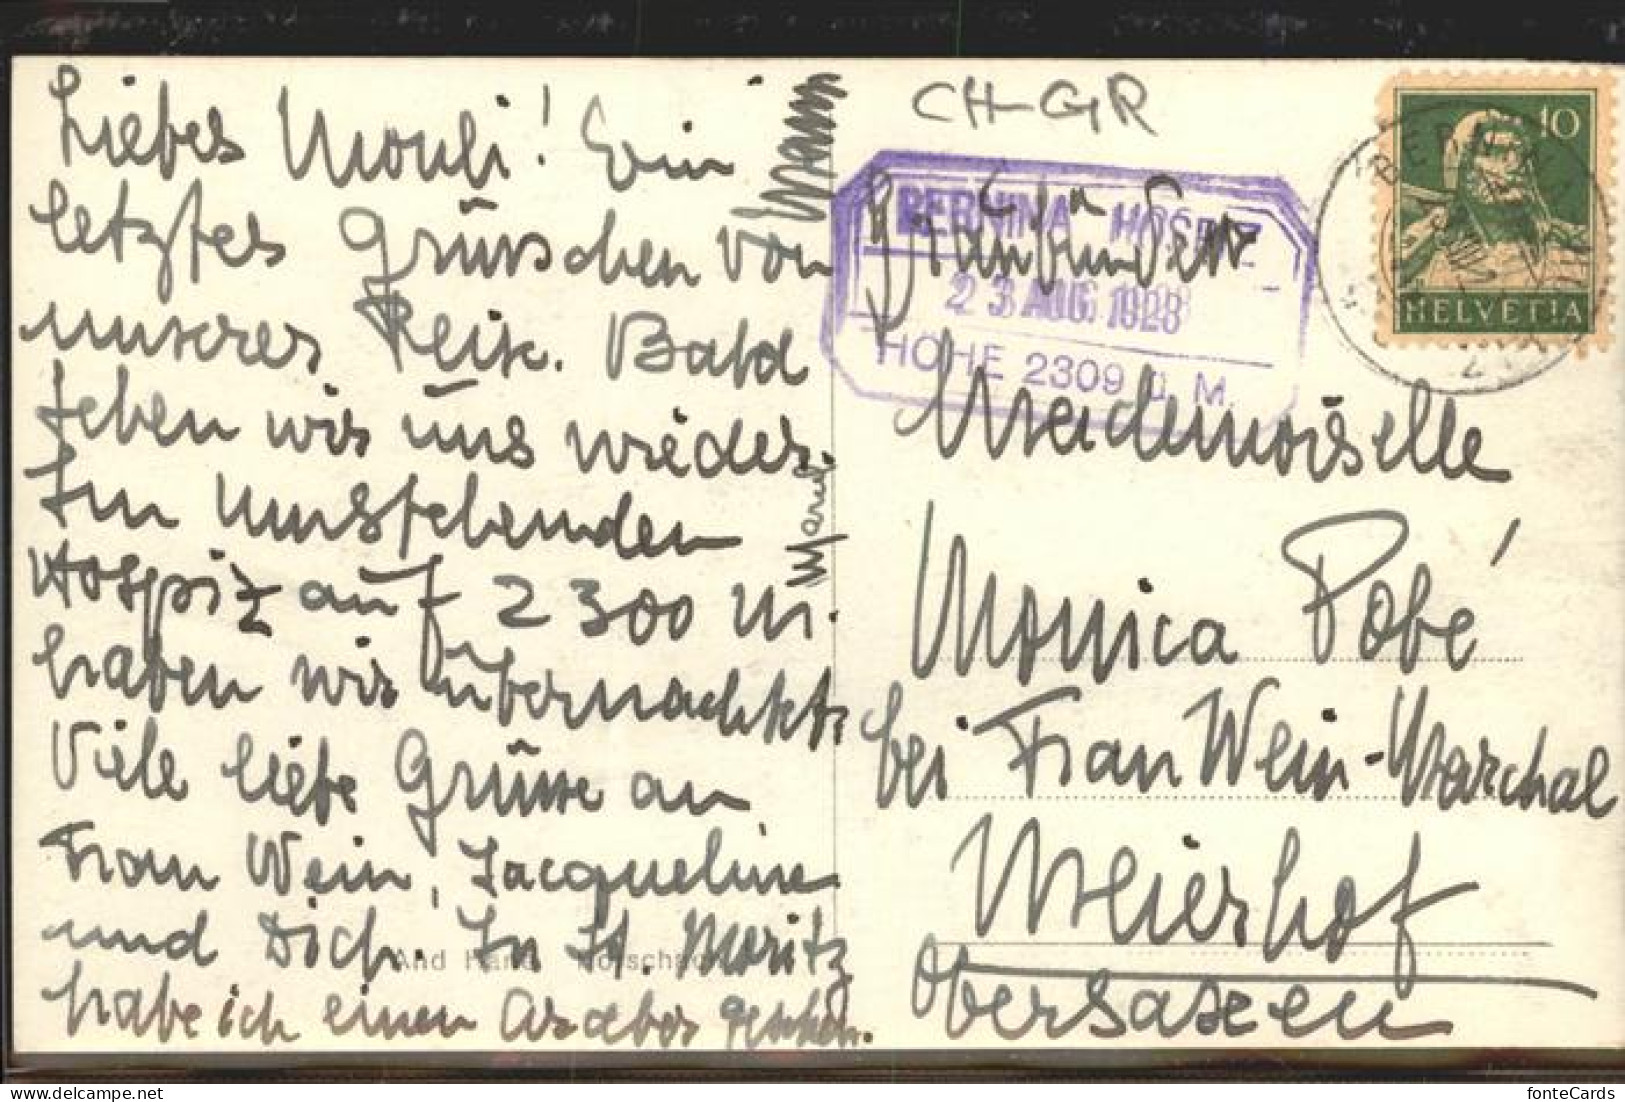 Liebes Mouli! Ein
letztes Grüsschen von
unserer Reise. Bald
sehen wir uns wieder.
Im umstehenden
Hospiz auf 2300 m.
haben wir übernachtet.
Viele liebe Grüsse an
Frau Wein, Jacqueline
und Dich. In St. Moritz
habe ich einen Araber
Maml
CH-GR
Graubünden
BERNINA HOSPIZ
23 AUG. 1928
HÖHE 2309 ü. M.
10
HELVETIA
BERNINA
Mademoiselle
Monica Pobé
bei Frau Wein-Marchal
Meierhof
Obersaxen
And
fonteCards